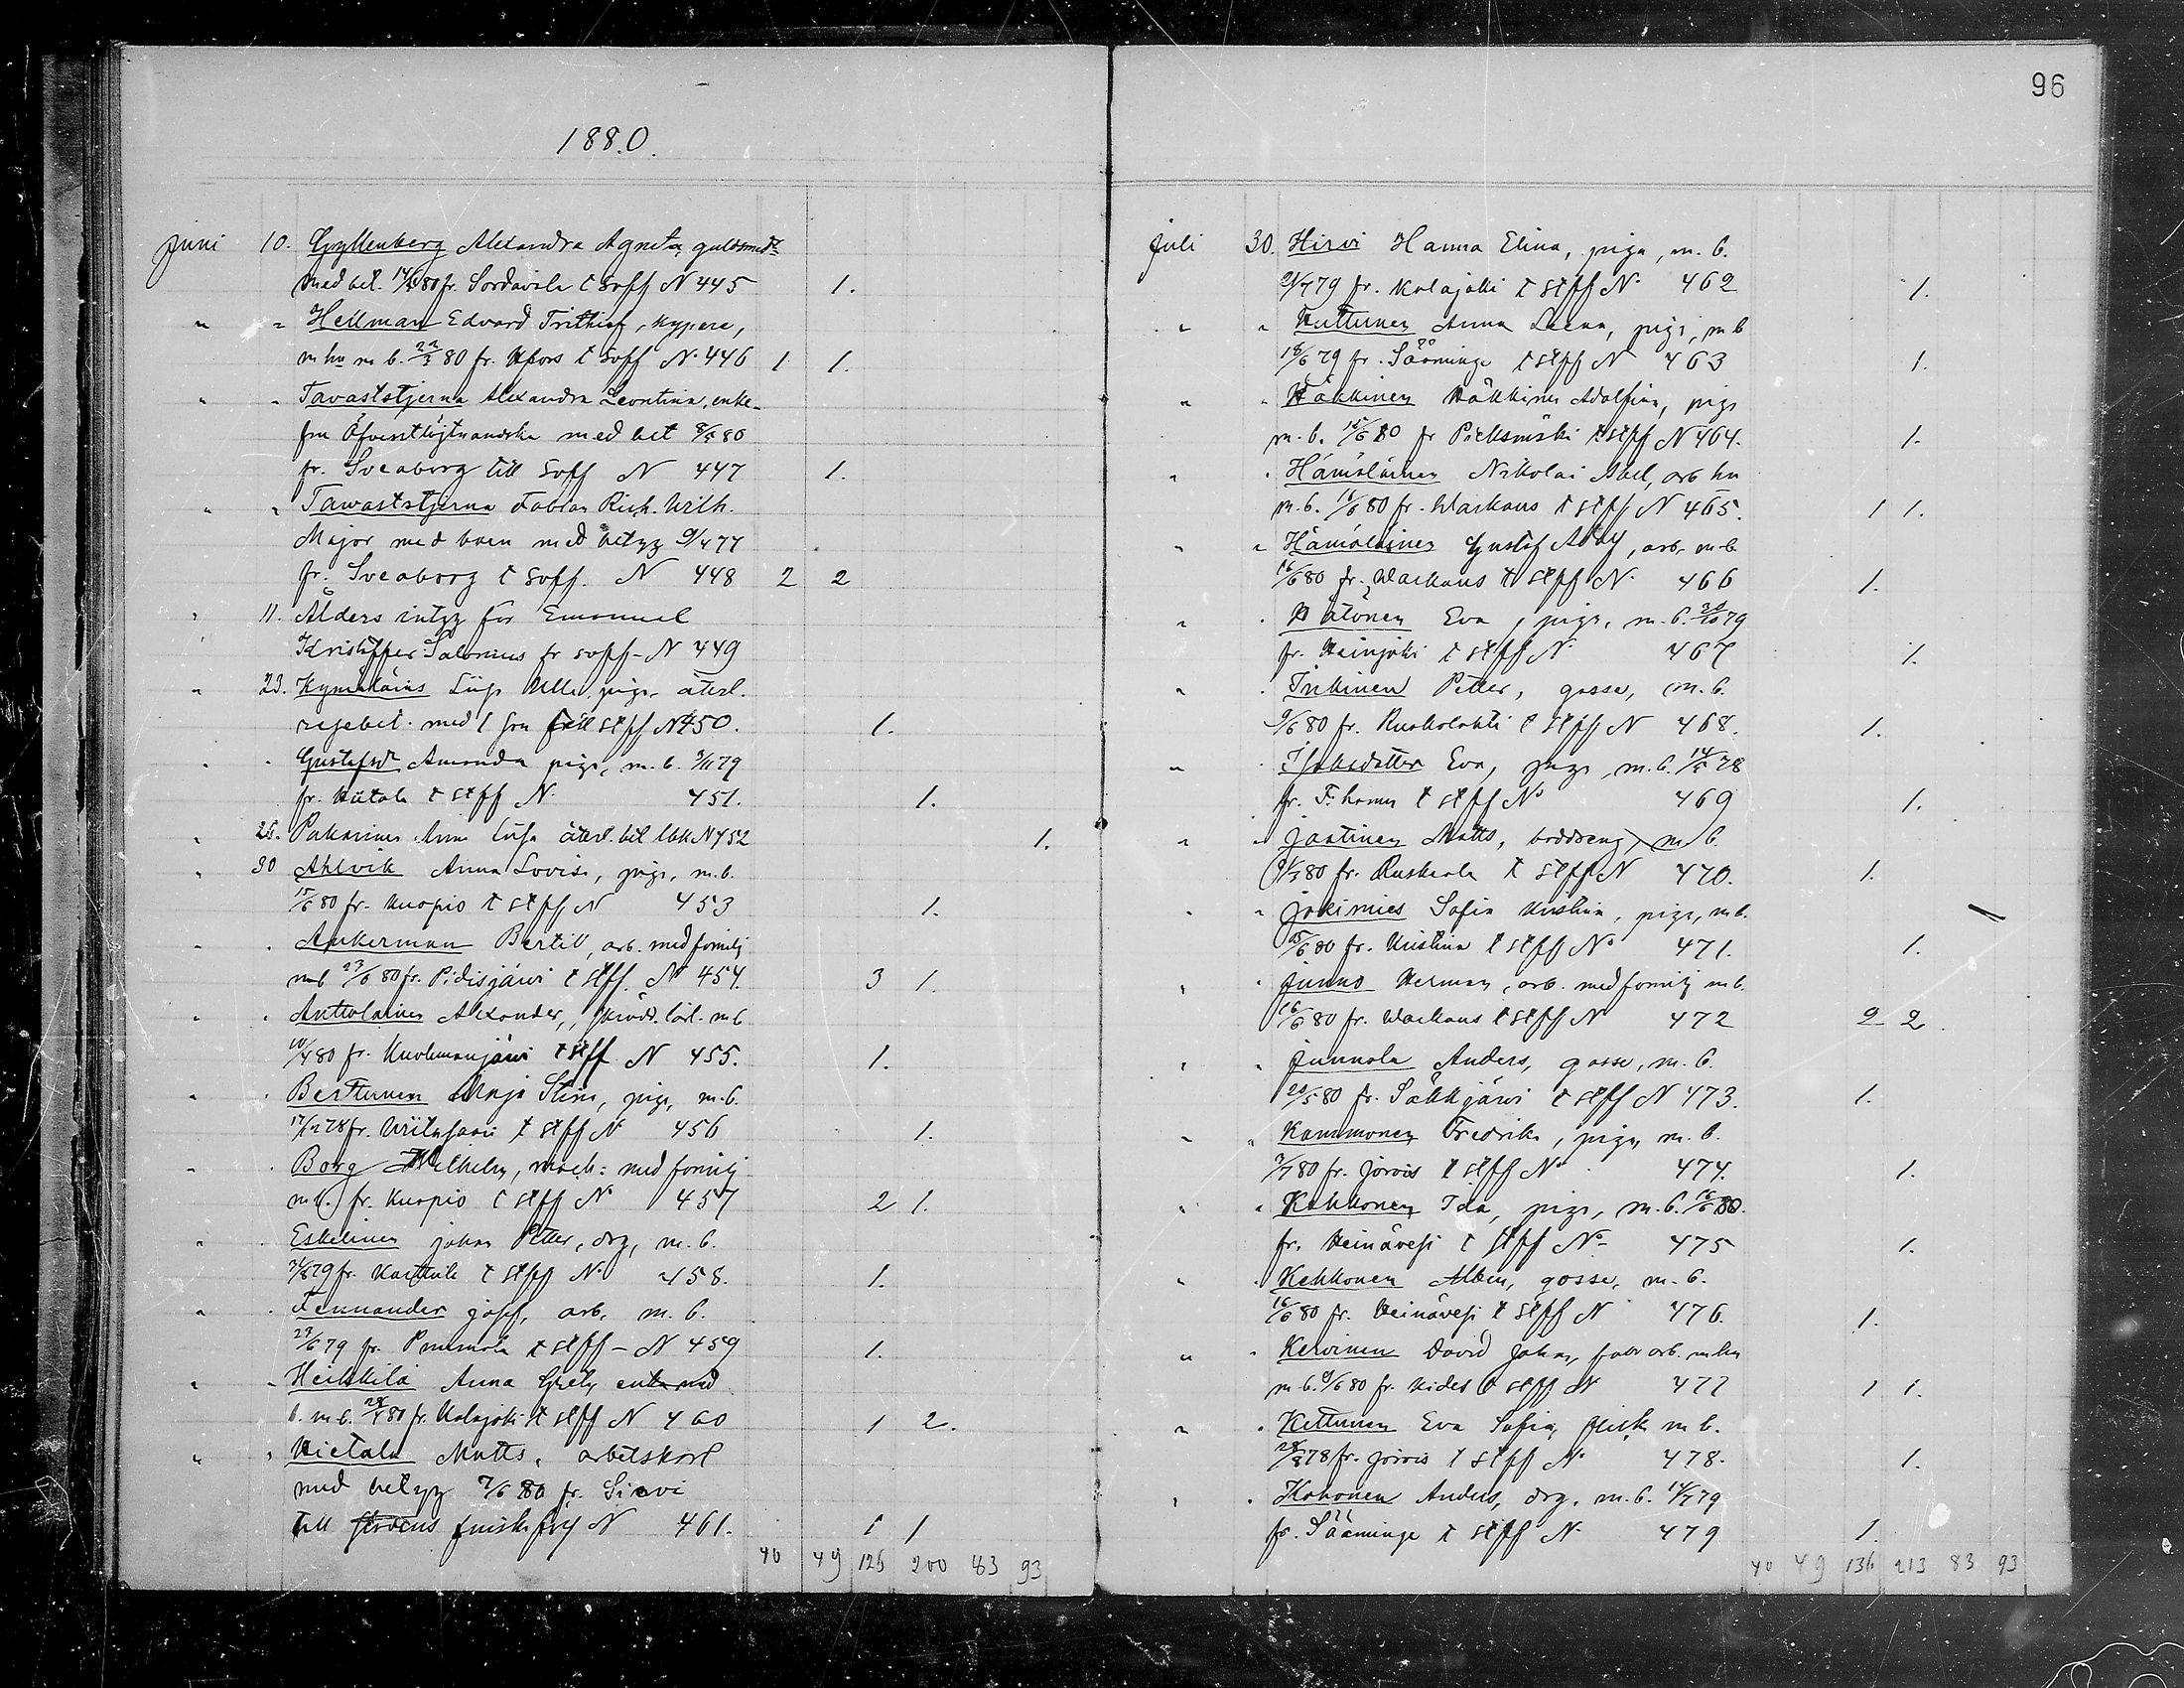 96
1880.
Juni 10. Gyllenberg Alexandra Agneta, guldsmedt
med bet. 14/5 80 fr. Sordavala t soff N 445 1.
" " Hellman Edvard Frithiof, kypare,
m hu m b. 22/3 80 fr. Hfors t soff N. 446 1 1.
" " Tavaststjerna Alexandra Leontina, enke-
fru Öfverstlöjtnandska med bet 8/5 80
fr. Sveaborg till Soff N 447 1.
" " Tawaststjerna Fabian Rich. Wilh.
Major med barn med betyg 9/4 77
fr. Sveaborg t soff. N 448 2 2
" 11. Ålders intyg för Emanuel
Kristoffer Salonius fr soff - N 449
" 23. Kymäläins Liisa Ulla, piga, återl.
resebet. med 1 son till stff N 450. 1.
" " Gustafsdr Amanda piga, m. b. 9/11 79
fr. Hiitola t stff N. 451. 1.
" 26. Pakarinen Anna Liisa återl. bet. N 452 1.
" 30 Ahlvik Anna Lovisa, piga, m. b.
15/6 80 fr. Kuopio t stff N 453 1.
" " Ankerman Bertil, arb. med familj
mb 23/6 80 fr. Pidisjärvi t stff. N 454. 3 1.
" " Anttolainen Alexander, skrädd. lärl. m b
10/4 80 fr. Kuolemanjärvi t stff N 455. 1.
" " Berttunen Maja Stina, piga, m. b.
17/12 78 fr. Uiitasaari t stff N 456 1.
" " Borg Wilhelm, mach: med familj
m b. fr. Kuopio t stff N. 457 2 1.
" " Eskelinen Johan Petter, drg, m. b.
21/8 79 fr. Karttula t stff N. 458. 1.
" " Fennander Josef, arb. m. b.
27/6 79 fr. Pummala t stff - N 459 1.
" " Heikkilä Anna Greta enka med
b. m. b. 28/4 80 fr. Kalajoki t stff N 460 1 2.
" " Hietala Matts, arbetskarl
med betyg 7/6 80 fr. Sievi
till finska förs N 461. 1 1
40 49 126 200 83 93
Juli 30. Hirvi Hanna Elina, piga, m. b.
21/7 79 fr. Kalajoki t stff N. 462 1.
" " Huttunen Anna Leena, piga, m b
18/6 79 fr. Sääminge t stff N 463 1.
" " Häkkinen Häkkinen Adolfina, piga
m. b. 15/6 80 fr Pieksmäki t stff N 464. 1.
" " Hämäläinen Nikolai Abel, arb hu
m. b. 16/6 80 fr. Warkaus t stff N 465. 1 1.
" " Hämäläinen Gustaf Adolf, arb. m b.
16/6 80 fr. Warkaus t stff N. 466 1.
" " Hätönen Eva, piga, m. b. 30/10 79
fr. Heinjoki t stff N. 467 1.
" " Inkinen Petter, gosse, m. b.
9/6 80 fr. Ruokolahti t stff N 468. 1.
" " Isaksdotter Eva, piga, m. b. 14/5 78
fr. F:hamn t stff No 469 1.
" " Jaatinen Matts, boddreng, m b.
9/3 80 fr. Ruskeala t stff N 470. 1.
" " Jokimies Sofia Kristina, piga, m b.
25/6 80 fr. Kristina t stff No 471. 1.
" " Junno Herman, arb. med familj m b.
16/6 80 fr. Warkaus t stff N 472 2 2.
" " Junnola Anders, gosse, m. b.
20/5 80 fr. Säkkjärvi t stff N 473. 1.
" " Kammonen Fredrika, piga, m. b.
2/7 80 fr. Jorois t stff No 474. 1.
" " Kekkonen Ida, piga, m. b. 16/6 80.
fr. Heinävesi t stff No 475 1.
" " Kekkonen Albin, gosse, m. b.
16/6 80 fr. Heinävesi t stff N 476. 1.
" " Kervinen David Johan, fabr arb. m hu
m b. 9/6 80 fr. Kides t stff N 477 1 1.
" " Kettunen Eva Sofia, m b.
28/8 78 fr. Jorois t stff N. 478. 1.
" " Kokonen Anders, drg. m. b. 14/7 79
fr. Sääminge t stff N. 479 1.
40 49 136 213 83 93